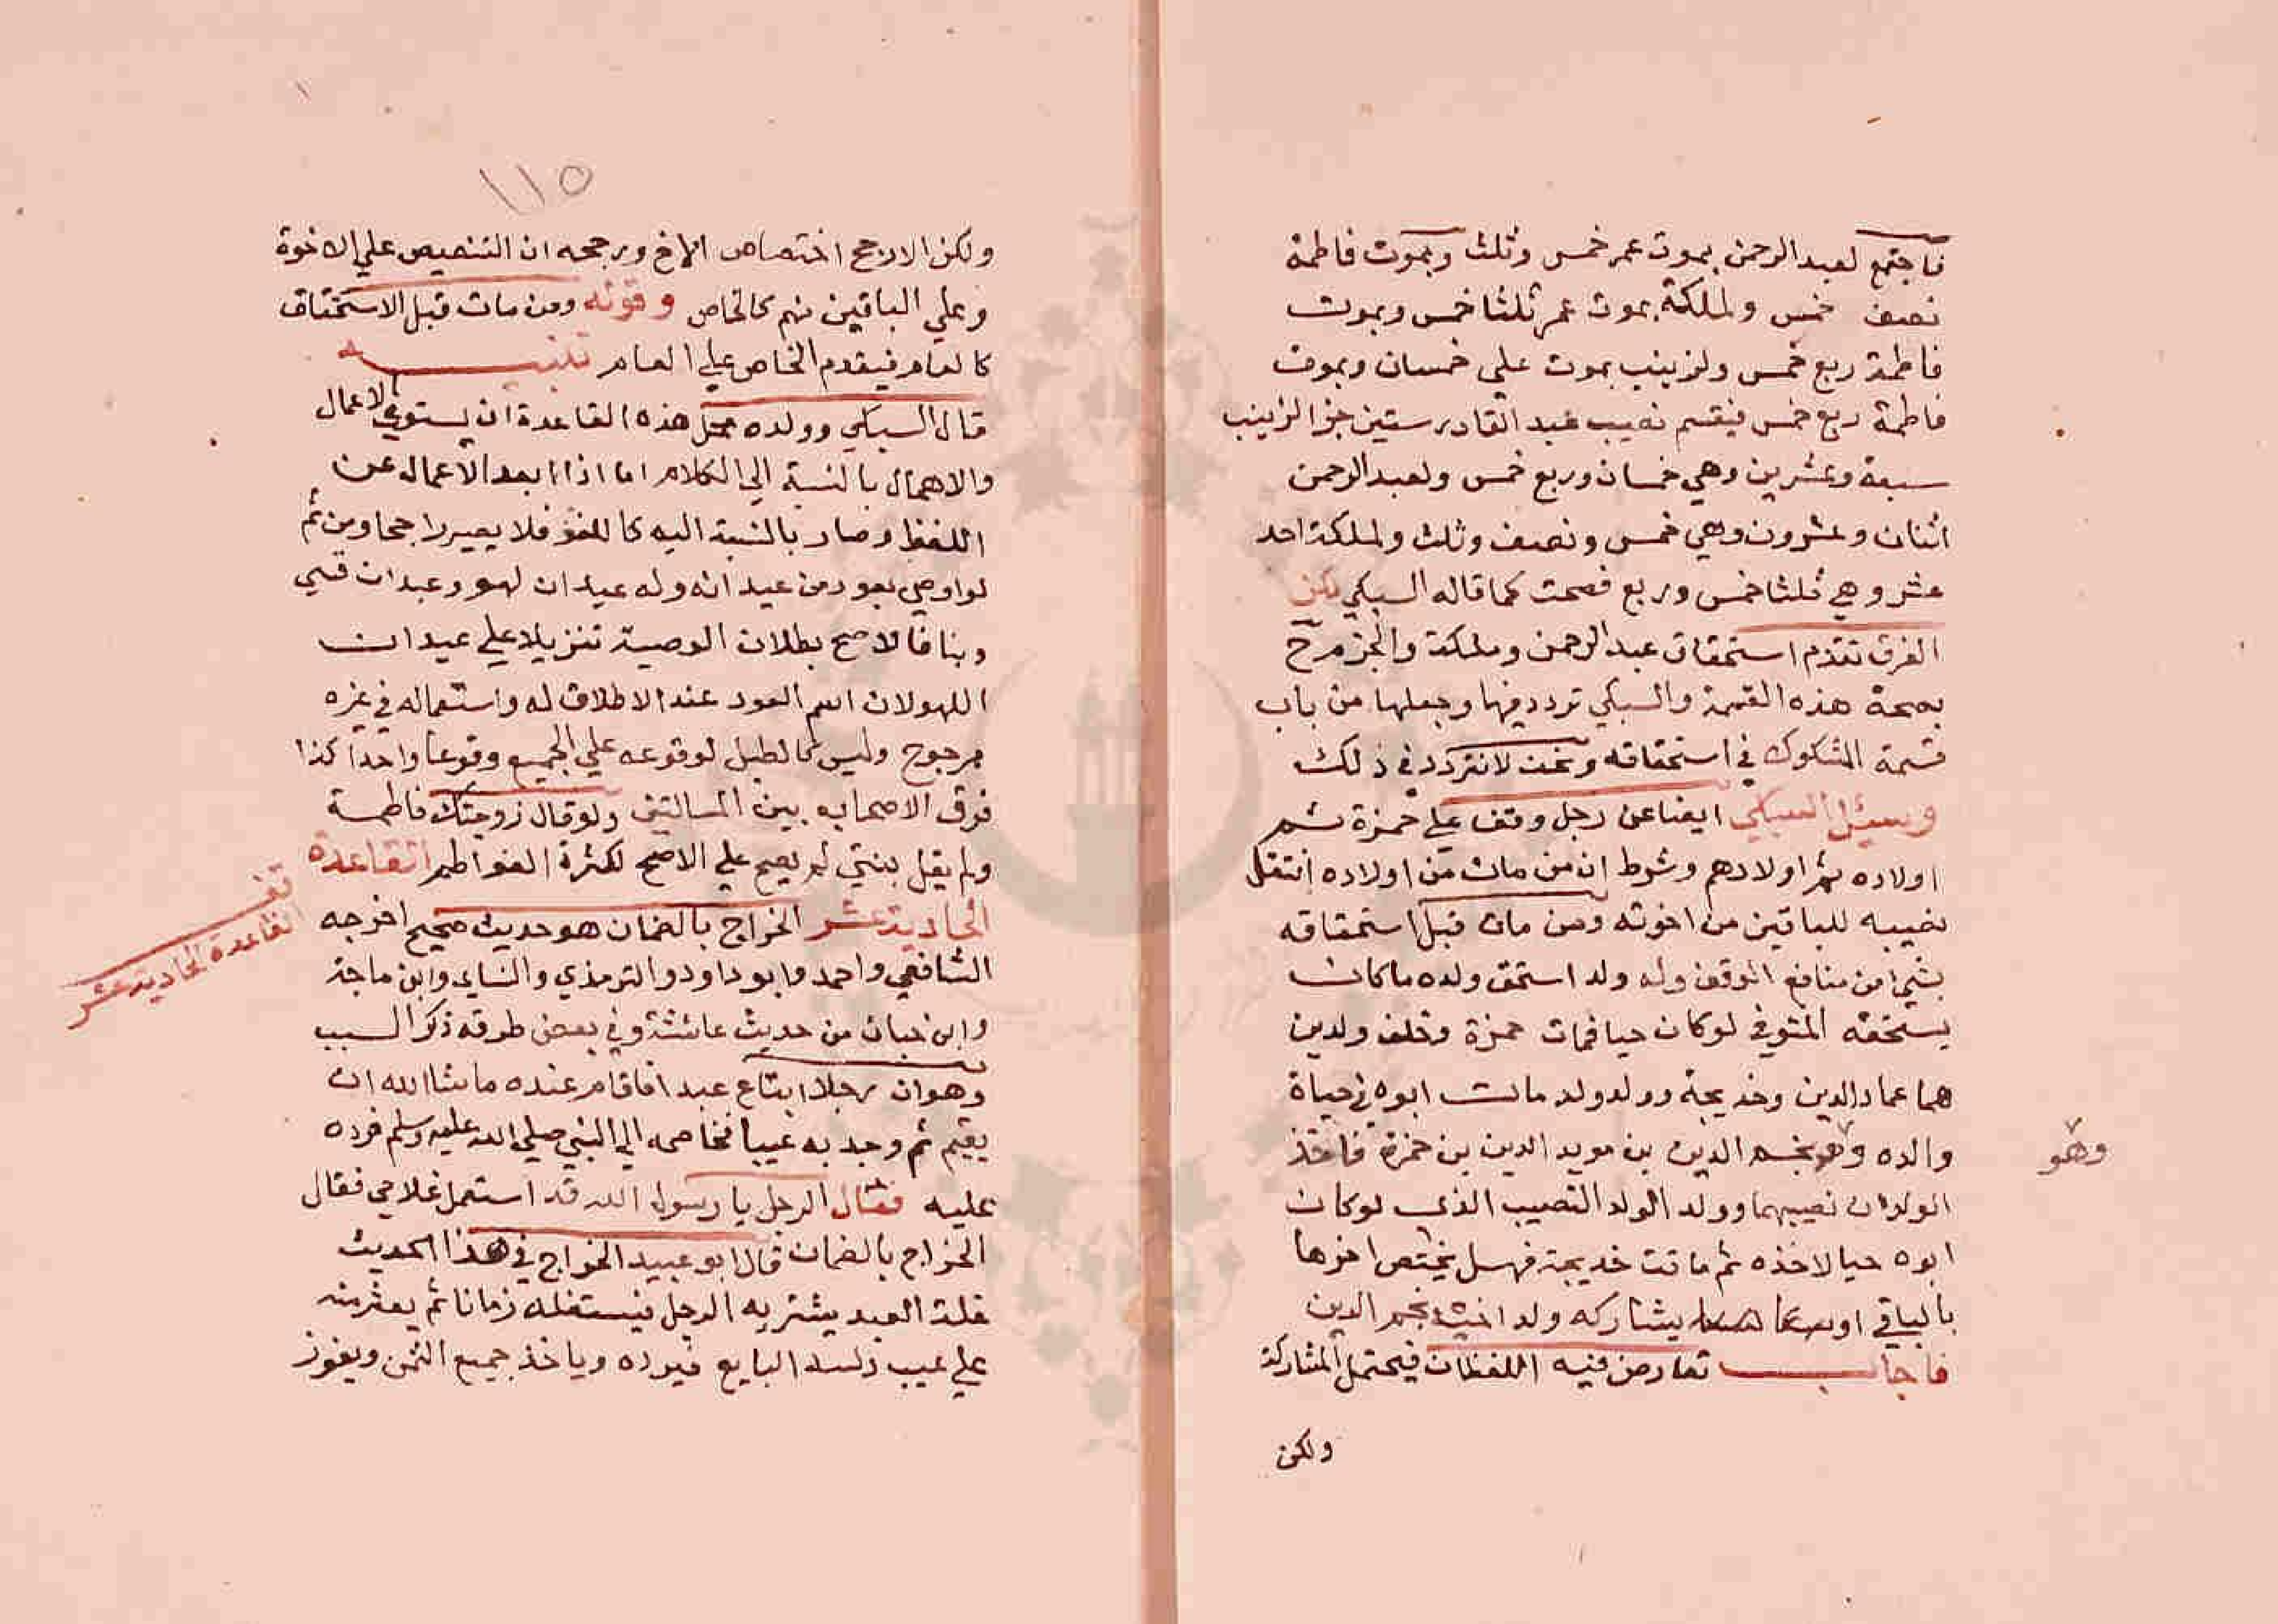 فاجتمع لعبد الرحمن بموت عمر خمس وثلث وبموت فاطمة
نصف خمس ولملكة بموت عمر ثلثا خمس وبموت
فاطمة ربع خمس ولزينب بموت علي خمسان وبموت
فاطمة ربع خمس فيقسم نصيب عبد القادر ستين جزا لزينب
سبعة وعشرين وهي خمسان وربع خمس ولعبد الرحمن
اثنان وعشرون وهي خمس ونصف وثلث ولملكة احد
عشر وهي ثلثا خمس وربع فصحت كما قاله السبكي لكن
الفرق تقدم استحقاق عبد الرحمن وملكة والجزم ح
بصحة هذه القسمة والسبكي تردد فيها وجعلها من باب
قسمة المشكوك في استحقاقه ونحن لا نتردد في ذلك
وسئل السبكي ايضا عن رجل وقف علي حمزة ثم
اولاده ثم اولادهم وشرط ان من مات من اولاده انتقل
نصيبه للباقين من اخوته ومن مات قبل استحقاقه
بشي من منافع الوقف وله ولد استحق ولده ما كان
يستحقه المتوفي لو كان حيا فمات حمزة وخلف ولدين
هما عماد الدين وخديجة وولد ولد مات ابوه في حياة
والده وهو نجم الدين بن مويد الدين بن حمزة فاخذ
وهو
الولدان نصيبهما وولد الولد النصيب الذي لو كان
ابوه حيا لاخذه ثم ماتت خديجة فهل يختص اخوها
بالباقي او يشاركه ولد اخيه نجم الدين
فاجاب تعارض فيه اللفظان فيحتمل المشاركة
ولكن
١١٥
ولكن الارجح اختصاص الاخ ويرجحه ان التنصيص علي الاخوة
وعلي الباقين منهم كالخاص وقوله ومن مات قبل الاستحقاق
كالعام فيقدم الخاص علي العام تنبيه
قال السبكي وولده محل هذه القاعدة ان يستوي الاعمال
والاهمال بالنسبة الي الكلام اما اذا ابعد الاعمال عن
اللفظ وصار بالنسبة اليه كاللغو فلا يصير راجحا ومن ثم
لو اوصي بعود من عيدانه وله عيدان لهو وعيدان قسي
وبنا فالاصح بطلان الوصية تنزيلا علي عيدان
اللهو لان اسم العود عند الاطلاق له واستعماله في غيره
مرجوح وليس كالطبل لوقوعه علي الجميع وقوعا واحدا كذا
فرق الاصحاب بين المسالتين ولو قال زوجتك فاطمة
ولم يقل بنتي لم يصح علي الاصح لكثرة الفواطم القاعدة
الحادية عشر الخراج بالضمان هو حديث صحيح اخرجه
القاعدة الحادية عشر
الشافعي واحمد وابو داود والترمذي والنساي وابن ماجة
وابن حبان من حديث عائشة وفي بعض طرقه ذكر السبب
وهو ان رجلا ابتاع عبدا فاقام عنده ما شا الله ان
يقيم ثم وجد به عيبا فخاصمه الي النبي صلي الله عليه وسلم فرده
عليه فقال الرجل يا رسول الله قد استعمل غلامي فقال
الخراج بالضمان قال ابو عبيد الخراج في هذا الحديث
غلة العبد يشتريه الرجل فيستغله زمانا ثم يعثر منه
علي عيب دلسه البايع فيرده وياخذ جميع الثمن ويفوز